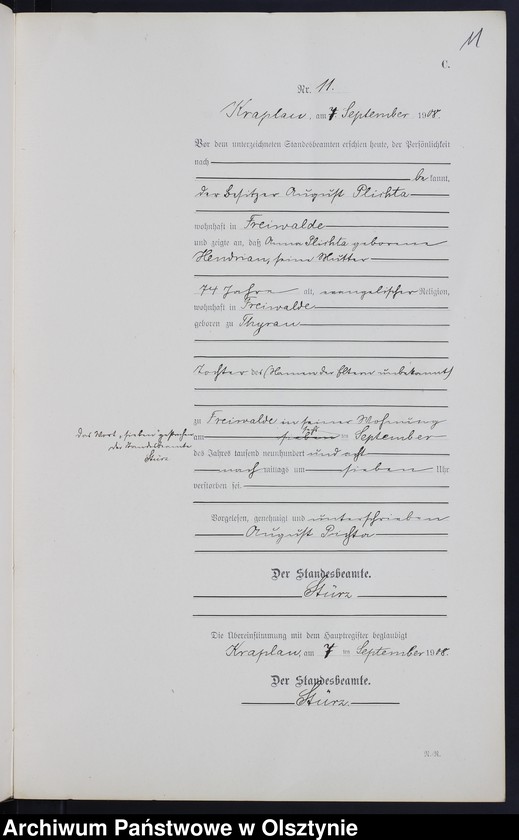 11
C.
Nr. 11.
Kraplau, am 7. September 1908.
Vor dem unterzeichneten Standesbeamten erschien heute, der Persönlichkeit
nach
be kannt,
der Besitzer August Plichta
wohnhaft in Freiwalde
und zeigte an, daß Anna Plichta geborene
Hendrian, seine Mutter
74 Jahre alt, evangelischer Religion,
wohnhaft in Freiwalde
geboren zu Thyrau
Tochter der (Namen der Eltern unbekannt)
zu Freiwalde in seiner Wohnung
am sieben ten September
Das Wort „sieben“ gestrichen
der Standesbeamte
Stürz
des Jahres tausend neunhundert und acht
nach mittags um sieben Uhr
verstorben sei.
Vorgelesen, genehmigt und unterschrieben
August Pichta
Der Standesbeamte.
Stürz
Die Übereinstimmung mit dem Hauptregister beglaubigt
Kraplau, am 7 ten September 1908.
Der Standesbeamte.
Stürz
Archiwum Państwowe w Olsztynie